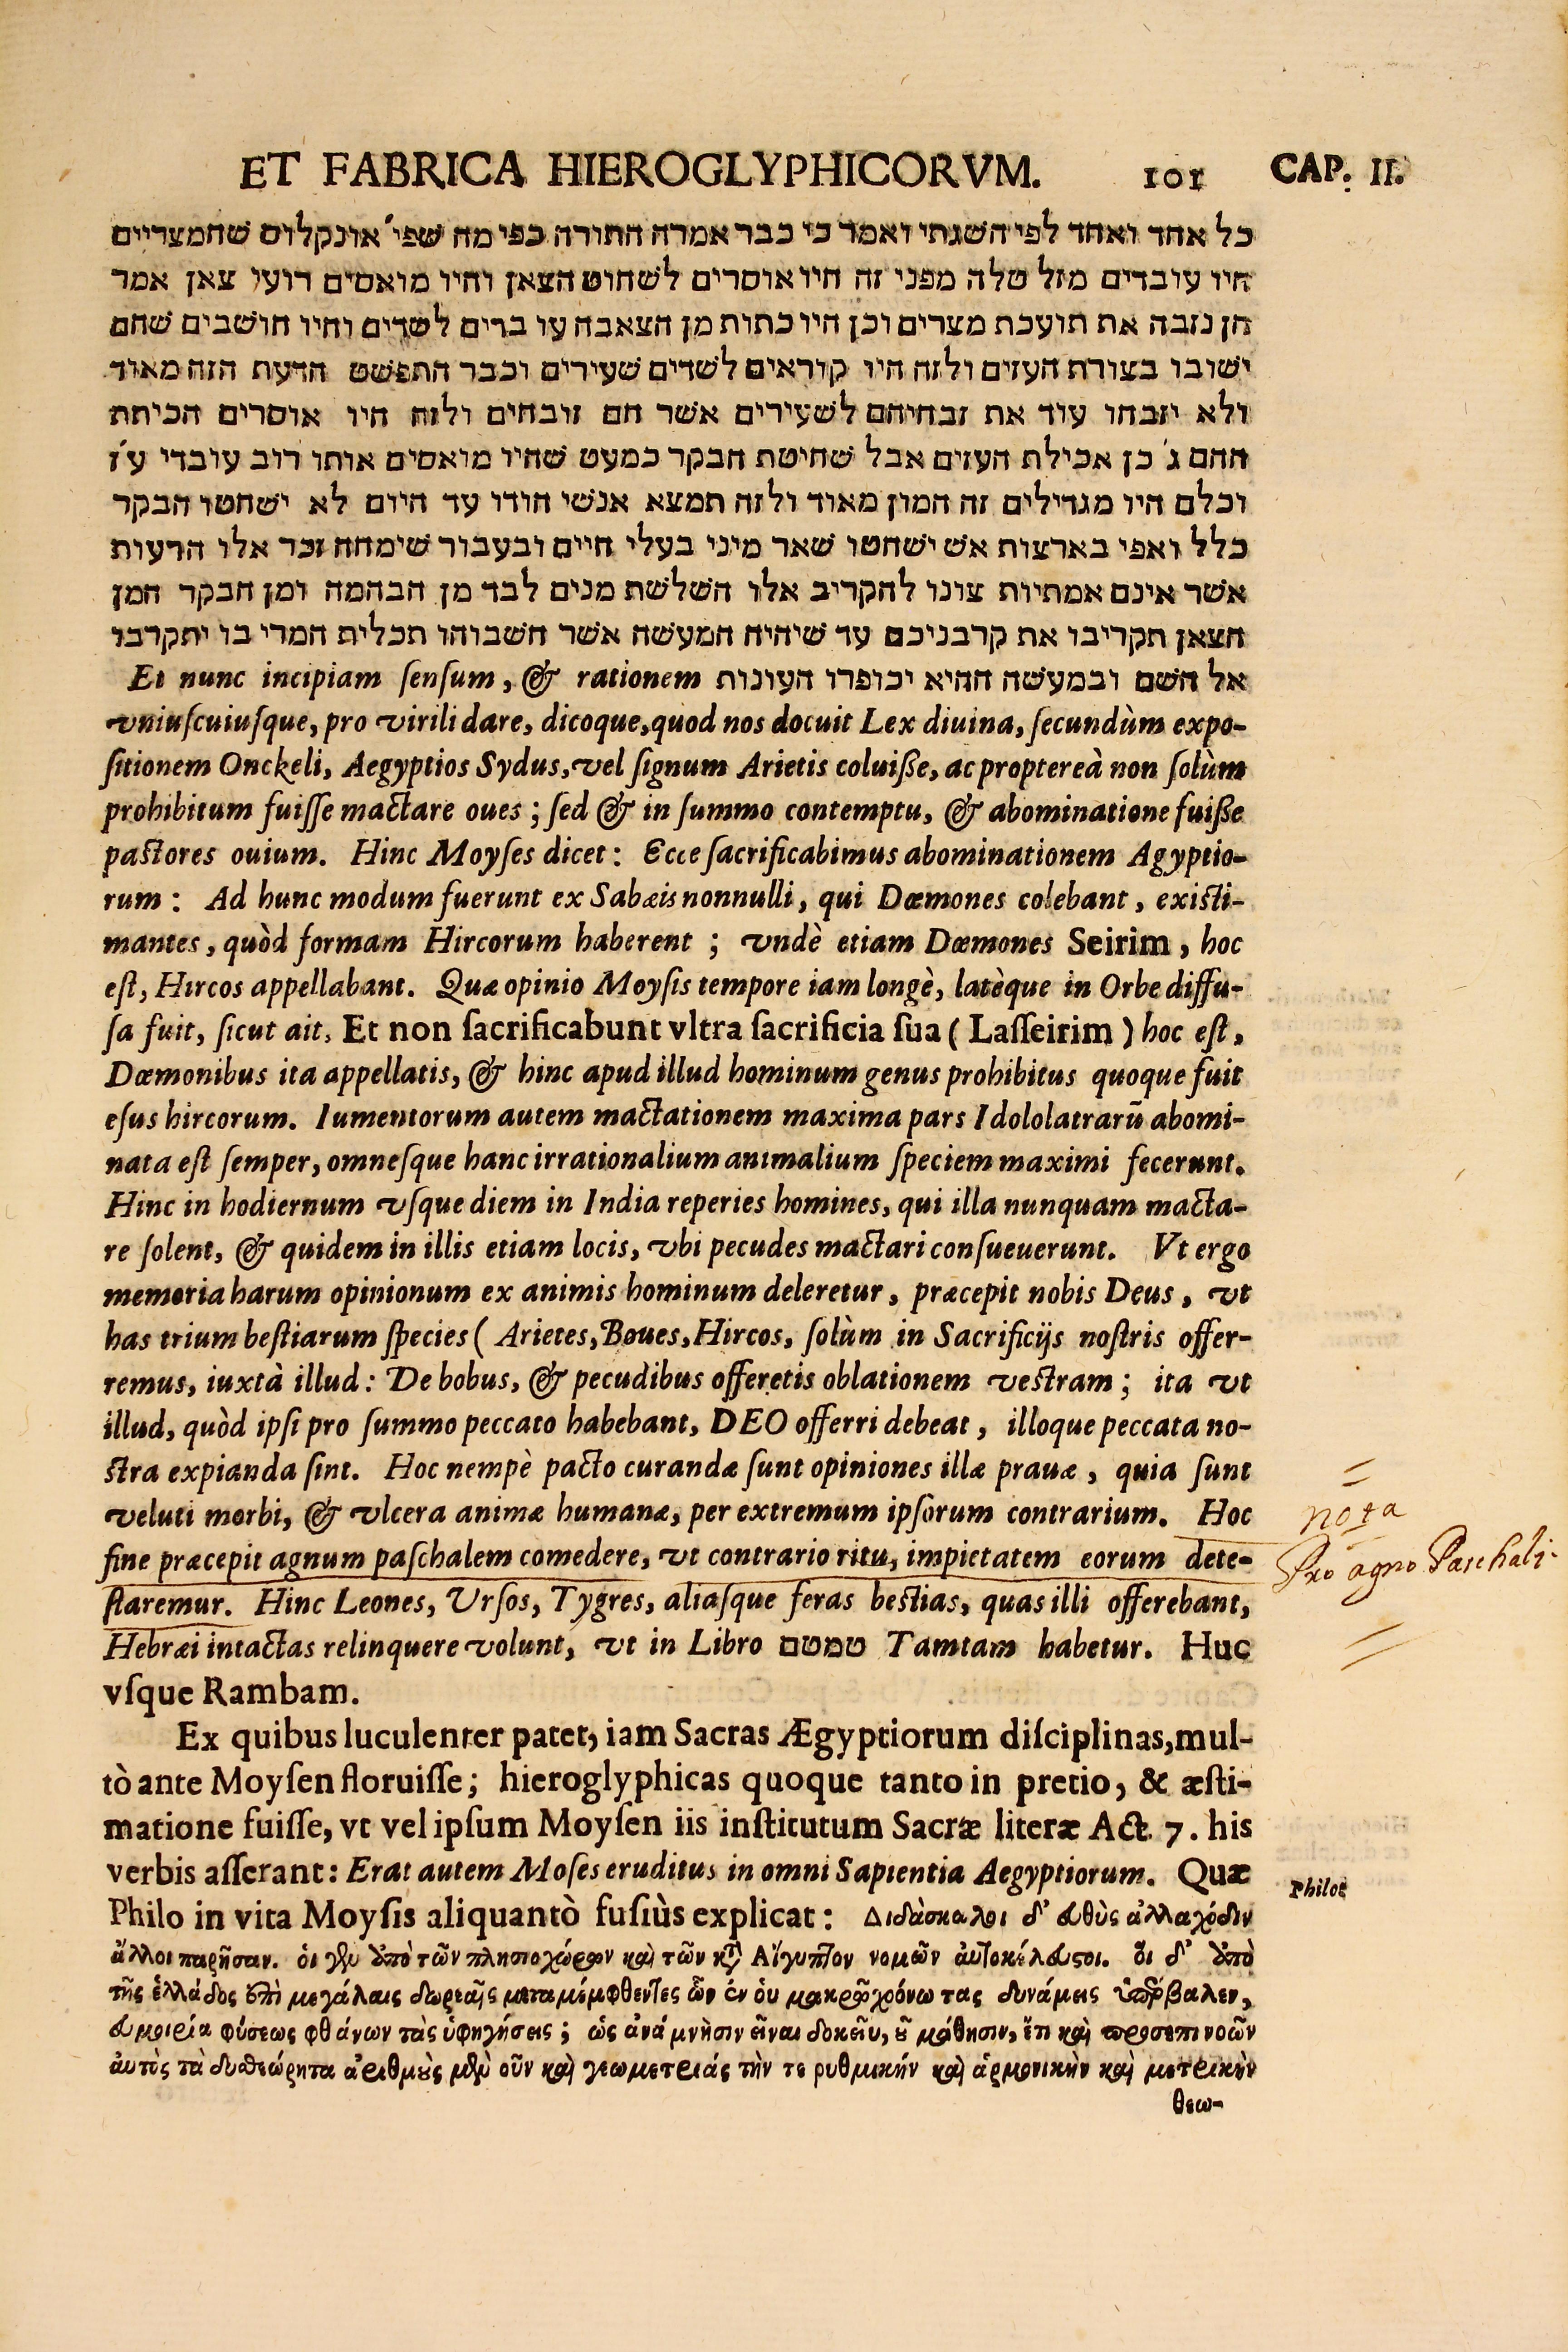 ET FABRICA HIEROGLYPHICORVM. 101 CAP. II.
כל אחד ואחד לפי השגתי ואמר כי כבר אמרה התורה כפי מה שפי׳ אונקלוס שהמצריים
היו עובדים מזל טלה מפני זה היו אוסרים לשחוט הצאן והיו מואסים רועי צאן אמר
הן נזבה את תועבת מצרים וכן היו כתות מן הצאבה עו ברים לשדים והיו חושבים שהם
ישובו בצורת העזים ולזה היו קוראים לשדים שעירים וכבר התפשט הדעת הזה מאוד
ולא יזבחו עוד את זבחיהם לשעירים אשר הם זובחים ולזה היו אוסרים הכיתת
ההם ג׳ כן אכילת העזים אבל שחיטת הבקר כמעט שהיו מואסים אותו רוב עובדי ע׳ז
וכלם היו מגדילים זה המון מאוד ולזה תמצא אנשי הודו עד היום לא ישחטו הבקר
כלל ואפי בארצות אש ישחטו שאר מיני בעלי חיים ובעבור שימחה זכר אלו הדעות
אשר אינם אמתיות צונו להקריב אלו השלשת מנים לבד מן הבהמה ומן הבקר המן
הצאן תקריבו את קרבניכם עד שיהיה המעשה אשר חשבוהו תכלית המרי בו יתקרבו
אל השם ובמעשה ההיא יכופרו העונות Et nunc incipiam ſenſum, & rationem
vniuſcuiuſque, pro virili dare, dicoque, quod nos docuit Lex diuina, ſecundùm expo-
ſitionem Onckeli, Aegyptios Sydus, vel ſignum Arietis coluiſſe, ac proptereà non ſolùm
prohibitum fuiſſe mactare oues; ſed & in ſummo contemptu, & abominatione fuiſſe
paſtores ouium. Hinc Moyſes dicet: Ecce ſacrificabimus abominationem Agyptio-
rum: Ad hunc modum fuerunt ex Sabæis nonnulli, qui Dæmones colebant, exiſti-
mantes, quòd formam Hircorum haberent; vndè etiam Dæmones Seirim, hoc
eſt, Hircos appellabant. Quæ opinio Moyſis tempore iam longè, latèque in Orbe diffu-
ſa fuit, ſicut ait, Et non ſacrificabunt vltra ſacrificia ſua (Laſſeirim) hoc eſt,
Dæmonibus ita appellatis, & hinc apud illud hominum genus prohibitus quoque fuit
eſus hircorum. Iumentorum autem mactationem maxima pars Idololatrarū abomi-
nata eſt ſemper, omneſque hanc irrationalium animalium ſpeciem maximi fecerunt.
Hinc in hodiernum vſque diem in India reperies homines, qui illa nunquam macta-
re ſolent, & quidem in illis etiam locis, vbi pecudes mactari conſueuerunt. Vt ergo
memoria harum opinionum ex animis hominum deleretur, præcepit nobis Deus, vt
has trium beſtiarum ſpecies (Arietes, Boues, Hircos, ſolùm in Sacrificijs noſtris offer-
remus, iuxtà illud: De bobus, & pecudibus offeretis oblationem veſtram; ita vt
illud, quòd ipſi pro ſummo peccato habebant, DEO offerri debeat, illoque peccata no-
ſtra expianda ſint. Hoc nempè pacto curandæ ſunt opiniones illæ prauæ, quia ſunt
veluti morbi, & vlcera animæ humanæ, per extremum ipſorum contrarium. Hoc
nota
fine præcepit agnum paſchalem comedere, vt contrario ritu, impietatem eorum dete-
Pro agno Paschali
ſtaremur. Hinc Leones, Urſos, Tygres, aliaſque feras beſtias, quas illi offerebant,
Hebræi intactas relinquere volunt, vt in Libro טמטם Tamtam habetur. Huc
vſque Rambam.
Ex quibus luculenter patet, iam Sacras Ægyptiorum diſciplinas, mul-
tò ante Moyſen floruiſſe; hieroglyphicas quoque tanto in pretio, & æſti-
matione fuiſſe, vt vel ipſum Moyſen iis inſtitutum Sacræ literæ Act. 7. his
verbis aſſerant: Erat autem Moſes eruditus in omni Sapientia Aegyptiorum. Quæ
Philo
Philo in vita Moyſis aliquantò fuſiùs explicat: Διδάσκαλοι δ' εὐθὺς ἀλλαχόθεν
ἄλλοι παρῆσαν. οἱ γὰρ ὑπὸ τῶν πλησιοχώρων καὶ τῶν κατ' Αἴγυπτον νομῶν αὐτοκέλευστοι. οἱ δ' ὑπὸ
τῆς ἑλλάδος ἐπὶ μεγάλαις δωρεαῖς μεταμέμφθεντες ὧν ἐν οὐ μακρῷ χρόνω τας δυνάμεις ὑπερβαλεν,
εὐμοιρία φύσεως φθάνων τὰς ὑφηγήσεις; ὡς ἀνάμνησιν εἶναι δοκεῖν, οὐ μάθησιν, ἔτι καὶ προσεπινοῶν
αὐτὸς τὰ δυσθεώρητα ἀριθμοὺς μὲν οὖν καὶ γεωμετρίας τὴν τε ρυθμικήν καὶ ἁρμονικὴν καὶ μετρικὴν
θεω-